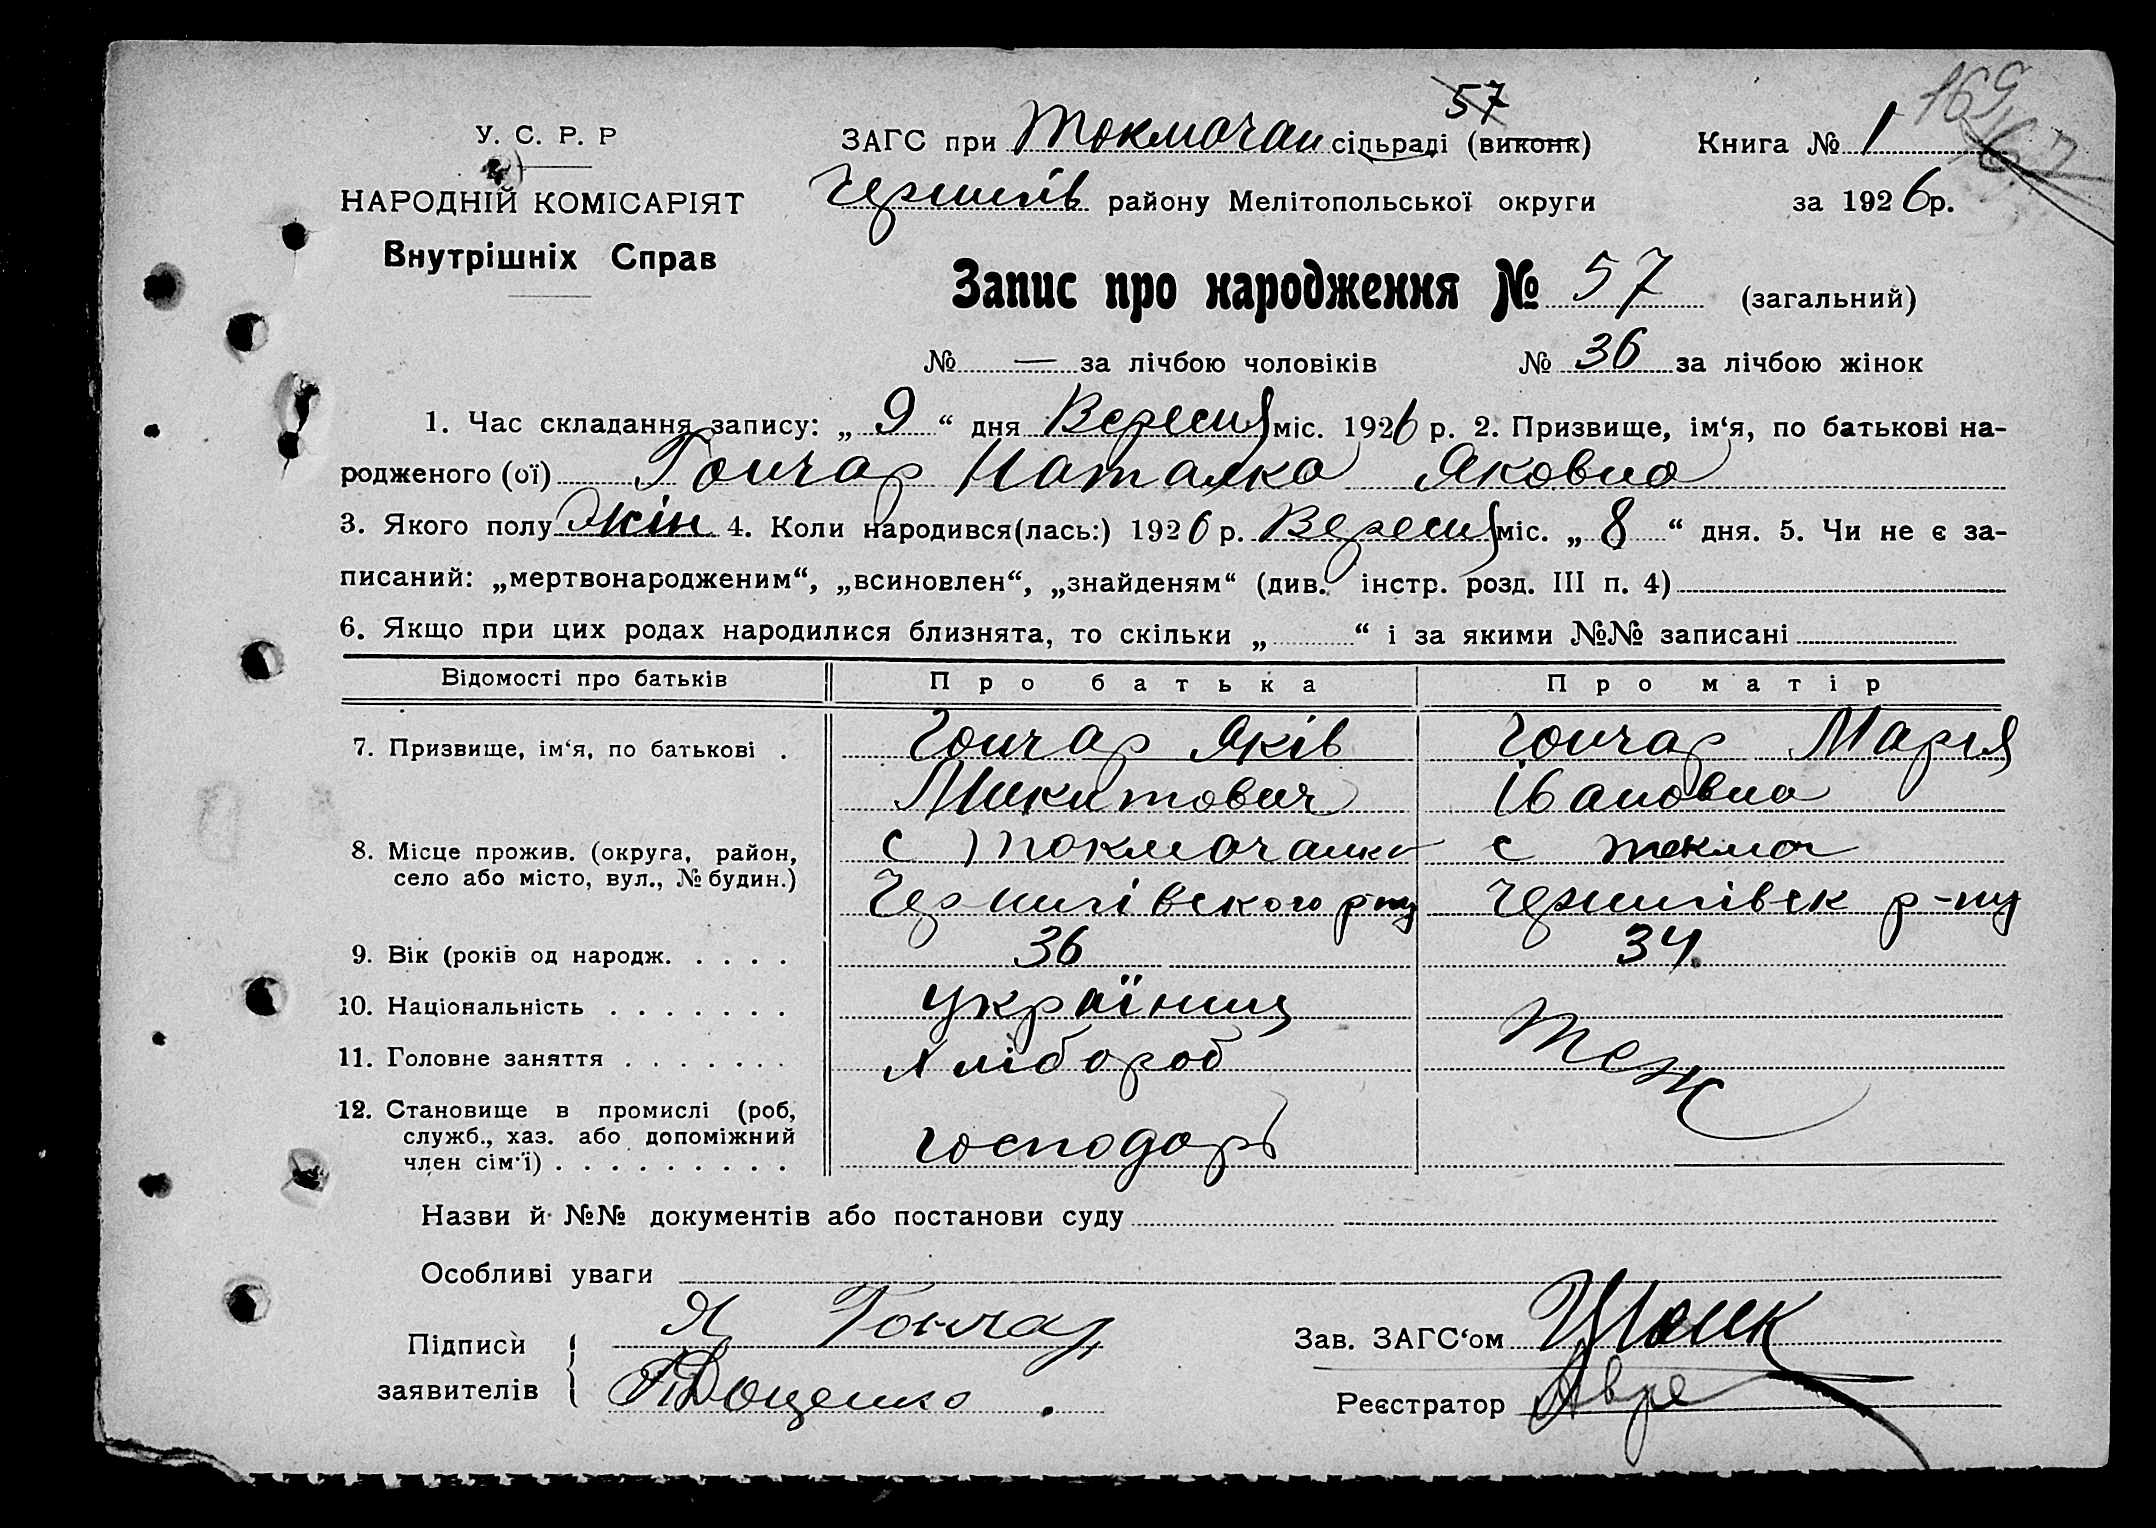 57
У. С. Р. Р
ЗАГС при Токмочан сільраді (виконк)
Книга № 1
169
67
НАРОДНІЙ КОМІСАРІЯТ
Чернигів району Мелітопольської округи
за 1926р.
Внутрішніх Справ
Запис про народження № 57 (загальний)
№ — за лічбою чоловіків № 36 за лічбою жінок
1. Час складання запису: „ 9 “ дня Вересня міс. 1926 р. 2. Призвище, ім‘я, по батькові на-
родженого (ої) Гончар Наталка Яковна
3. Якого полу жін. 4. Коли народився(лась:) 1926 р. Вересня міс. „ 8 “ дня. 5. Чи не є за-
писаний: „мертвонародженим“, „всиновлен“, „знайденям“ (див. інстр. розд. III п. 4)
6. Якщо при цих родах народилися близнята, то скільки „ “ і за якими №№ записані
Відомості про батьків Про батька Про матір
7. Призвище, ім‘я, по батькові . Гончар Яків Гончар Мария
Микитович Івановна
8. Місце прожив. (округа, район, с Токмочанка с токмоч
село або місто, вул., № будин.)
Чернигівского р-ну Чернигівск р-ну
9. Вік (років од народж. . . . . 36 34.
10. Національність . . . . . . . україниц
11. Головне заняття . . . . . . . хлібороб теж
12. Становище в промислі (роб,
служб., хаз. або допоміжний господарь
член сім‘ї) . . . . . . . . .
Назви й №№ документів або постанови суду
Особливі уваги
Підписи Я Гончар
Зав. ЗАГС‘ом
заявителів Доценко
Реєстратор